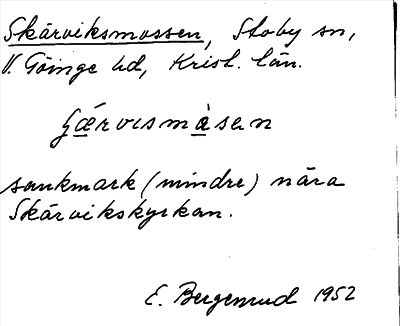 Skärviksmossen, Stoby sn,
V. Göinge hd, Krist. län.
ʃærvismåsen
sankmark (mindre) nära
Skärvikskyrkan.
E. Bergenrud 1952